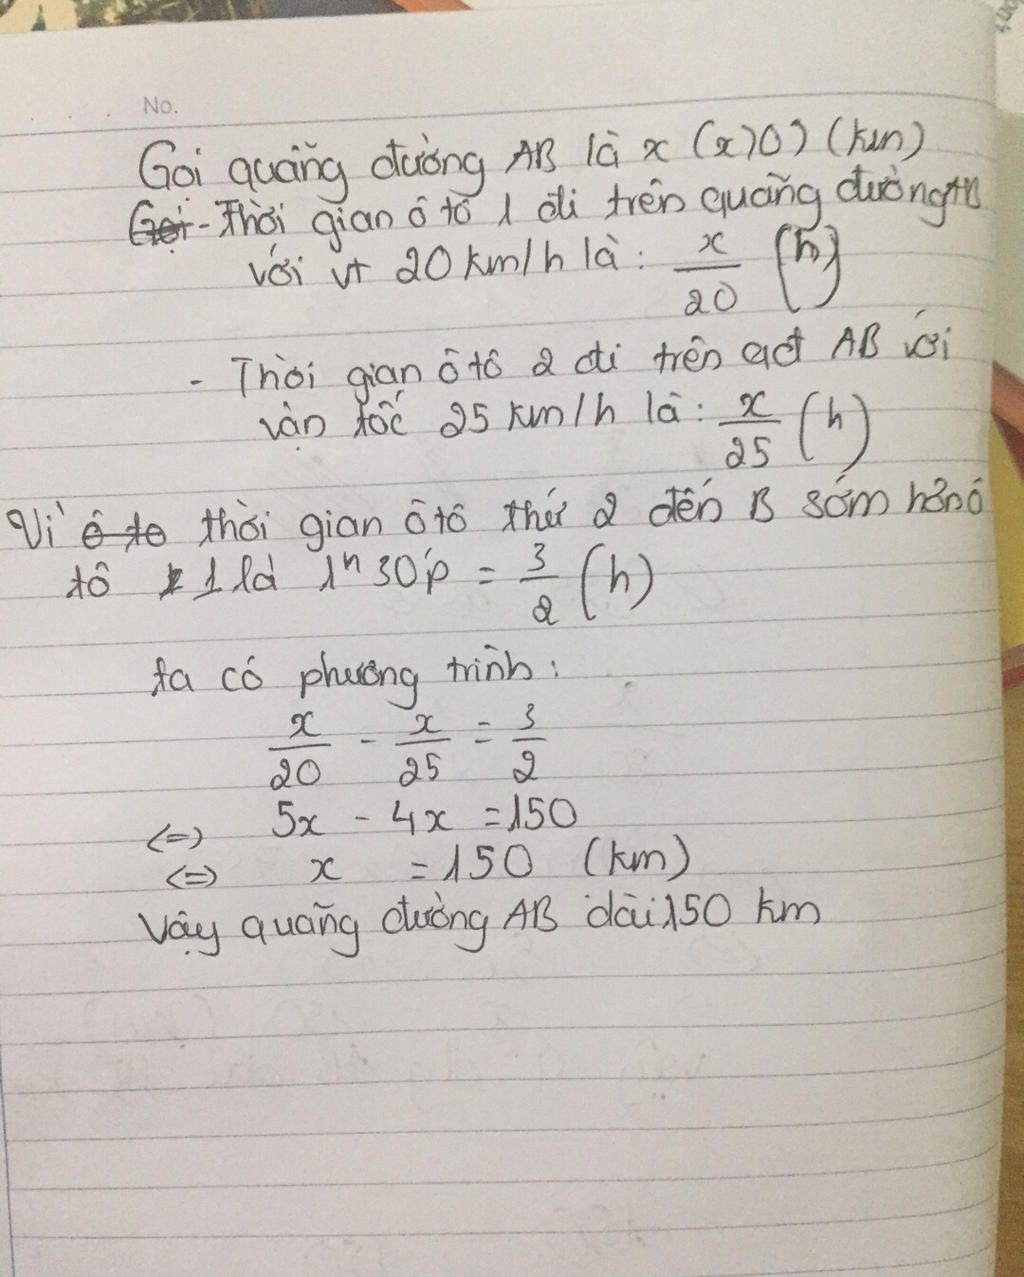 No.
Gọi quãng đường AB là x (x>0) (km)
Gọi - Thời gian ô tô 1 đi trên quãng đường AB
với vt 20 km/h là: x/20 (h)
- Thời gian ô tô 2 đi trên qđ AB với
vận tốc 25 km/h là: x/25 (h)
Vì ô to thời gian ô tô thứ 2 đến B sớm hơn ô
tô 1 là 1h 30p = 3/2 (h)
ta có phương trình:
x/20 - x/25 = 3/2
<=> 5x - 4x = 150
<=> x = 150 (km)
Vậy quãng đường AB dài 150 km